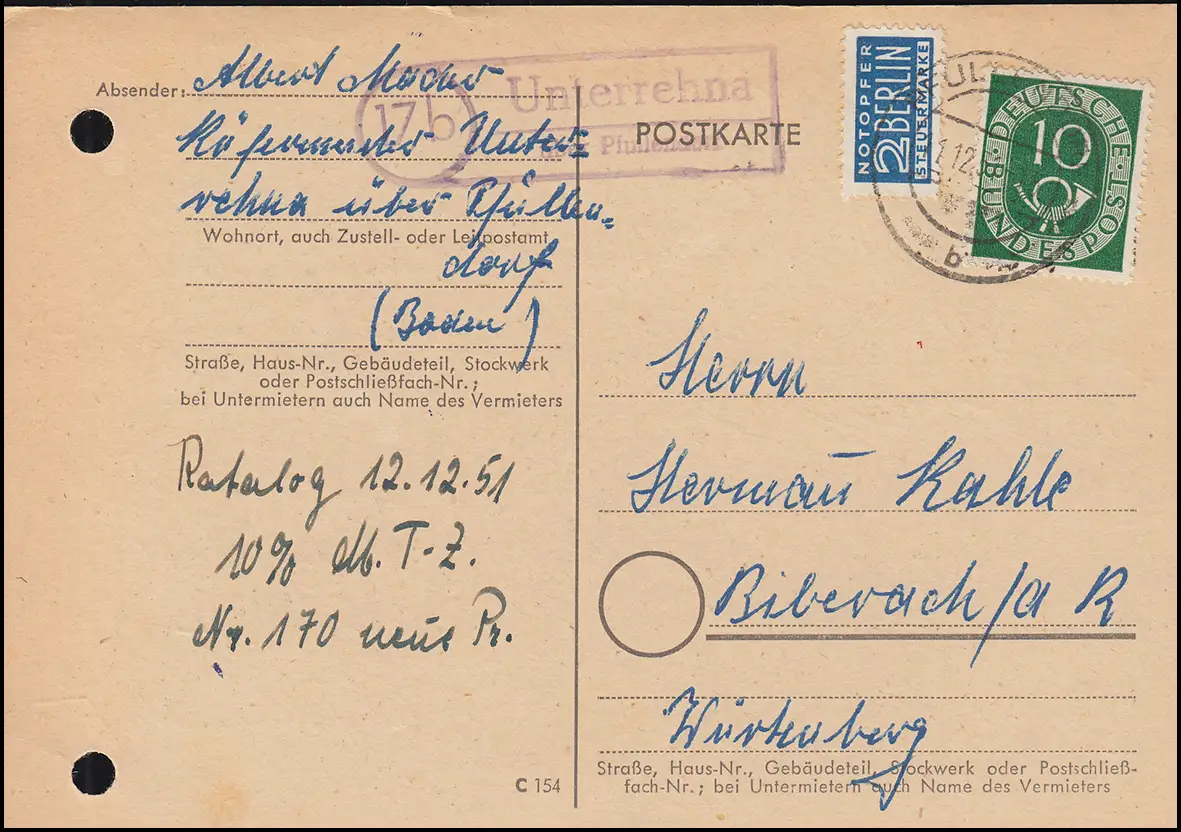 Absender: Albert Mader
Unter=
rehna über Pfullen=
Wohnort, auch Zustell- oder Leitpostamt
dorf
(Baden)
Straße, Haus-Nr., Gebäudeteil, Stockwerk
oder Postschließfach-Nr.;
bei Untermietern auch Name des Vermieters
Katalog 12.12.51
10% T-Z.
Nr. 170 neue Pr.
C 154
17b
Unterrehna
über Pfullendorf
POSTKARTE
NOTOPFER
2 BERLIN
STEUERMARKE
DEUTSCHE BUNDESPOST
10
b
Herrn
Hermann Kahle
Biberach/a R
Würtenberg
Straße, Haus-Nr., Gebäudeteil, Stockwerk oder Postschließ-
fach-Nr.; bei Untermietern auch Name des Vermieters